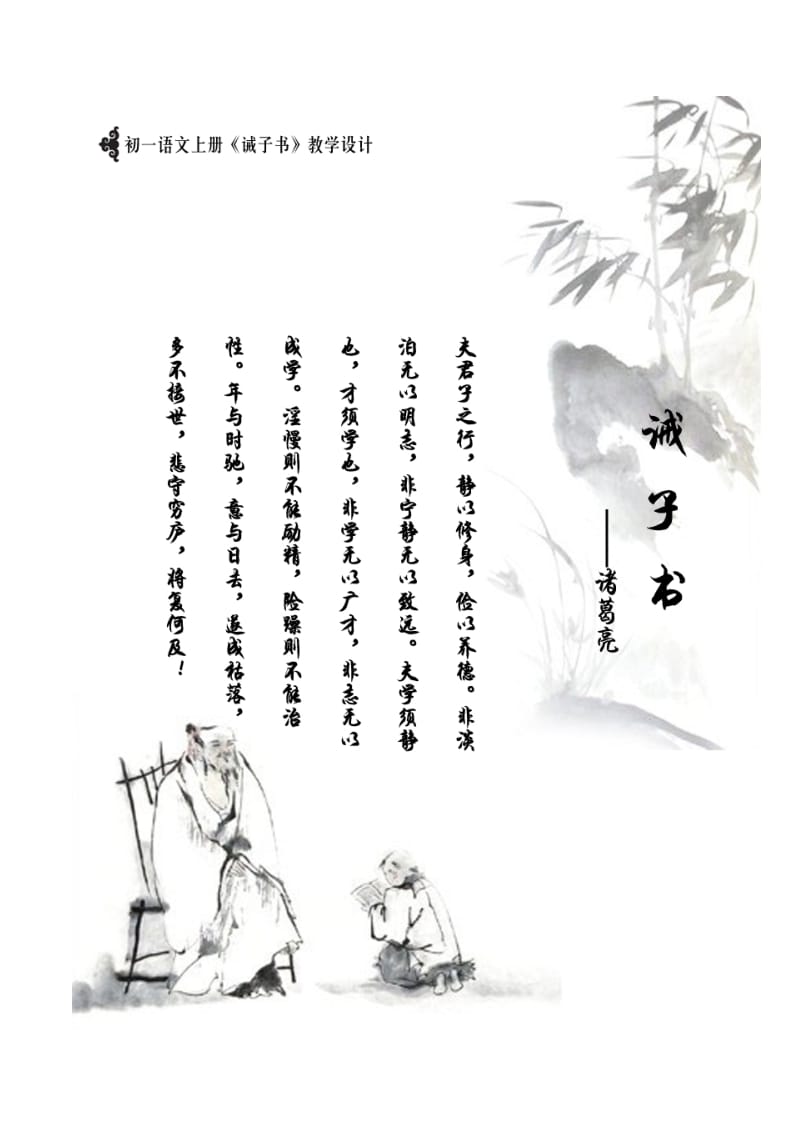 初一语文上册《诫子书》教学设计
诫子书
——诸葛亮
夫君子之行，静以修身，俭以养德。非淡
泊无以明志，非宁静无以致远。夫学须静
也，才须学也，非学无以广才，非志无以
成学。淫慢则不能励精，险躁则不能治
性。年与时驰，意与日去，遂成枯落，
多不接世，悲守穷庐，将复何及！